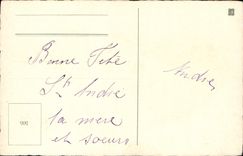 Bonne Fête
St André
ta mère
et soeurs
André